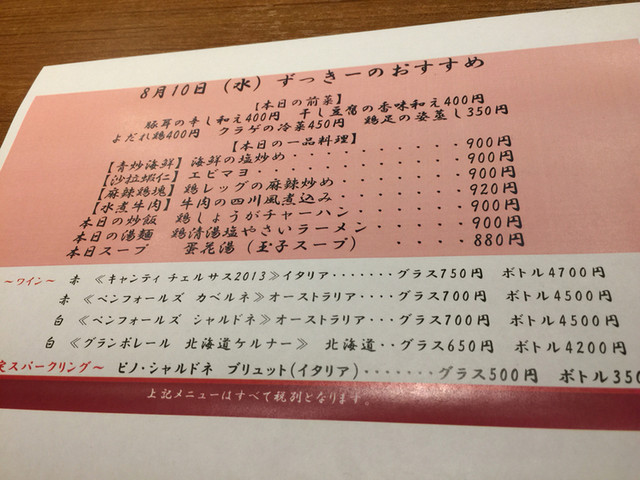 8月10日（水）ずっきーのおすすめ
【本日の前菜】
豚耳の辛し和え400円 干し豆腐の香味和え400円
よだれ鶏400円 クラゲの冷菜450円 鶏足の姿蒸し350円
【本日の一品料理】
【青炒海鮮】海鮮の塩炒め・・・・・・・・・・900円
【沙拉蝦仁】エビマヨ・・・・・・・・・・900円
【麻辣鶏塊】鶏レッグの麻辣炒め・・・・・・・900円
【水煮牛肉】牛肉の四川風煮込み・・・・・・・920円
本日の炒飯 鶏しょうがチャーハン・・・・・900円
本日の湯麺 鶏清湯塩やさいラーメン・・・・・900円
本日スープ 蛋花湯（玉子スープ）・・・・・880円
～ワイン～ 赤 ≪キャンティ チェルサス2013≫イタリア・・・・・・・グラス750円 ボトル4700円
赤 ≪ペンフォールズ カベルネ≫オーストラリア・・・グラス700円 ボトル4500円
白 ≪ペンフォールズ シャルドネ≫オーストラリア・・・グラス700円 ボトル4500円
白 ≪グランポレール 北海道ケルナー≫ 北海道・・グラス650円 ボトル4200円
スパークリング～ ピノ・シャルドネ ブリュット(イタリア)・・・・・・・グラス500円 ボトル350
上記メニューはすべて税別となります。